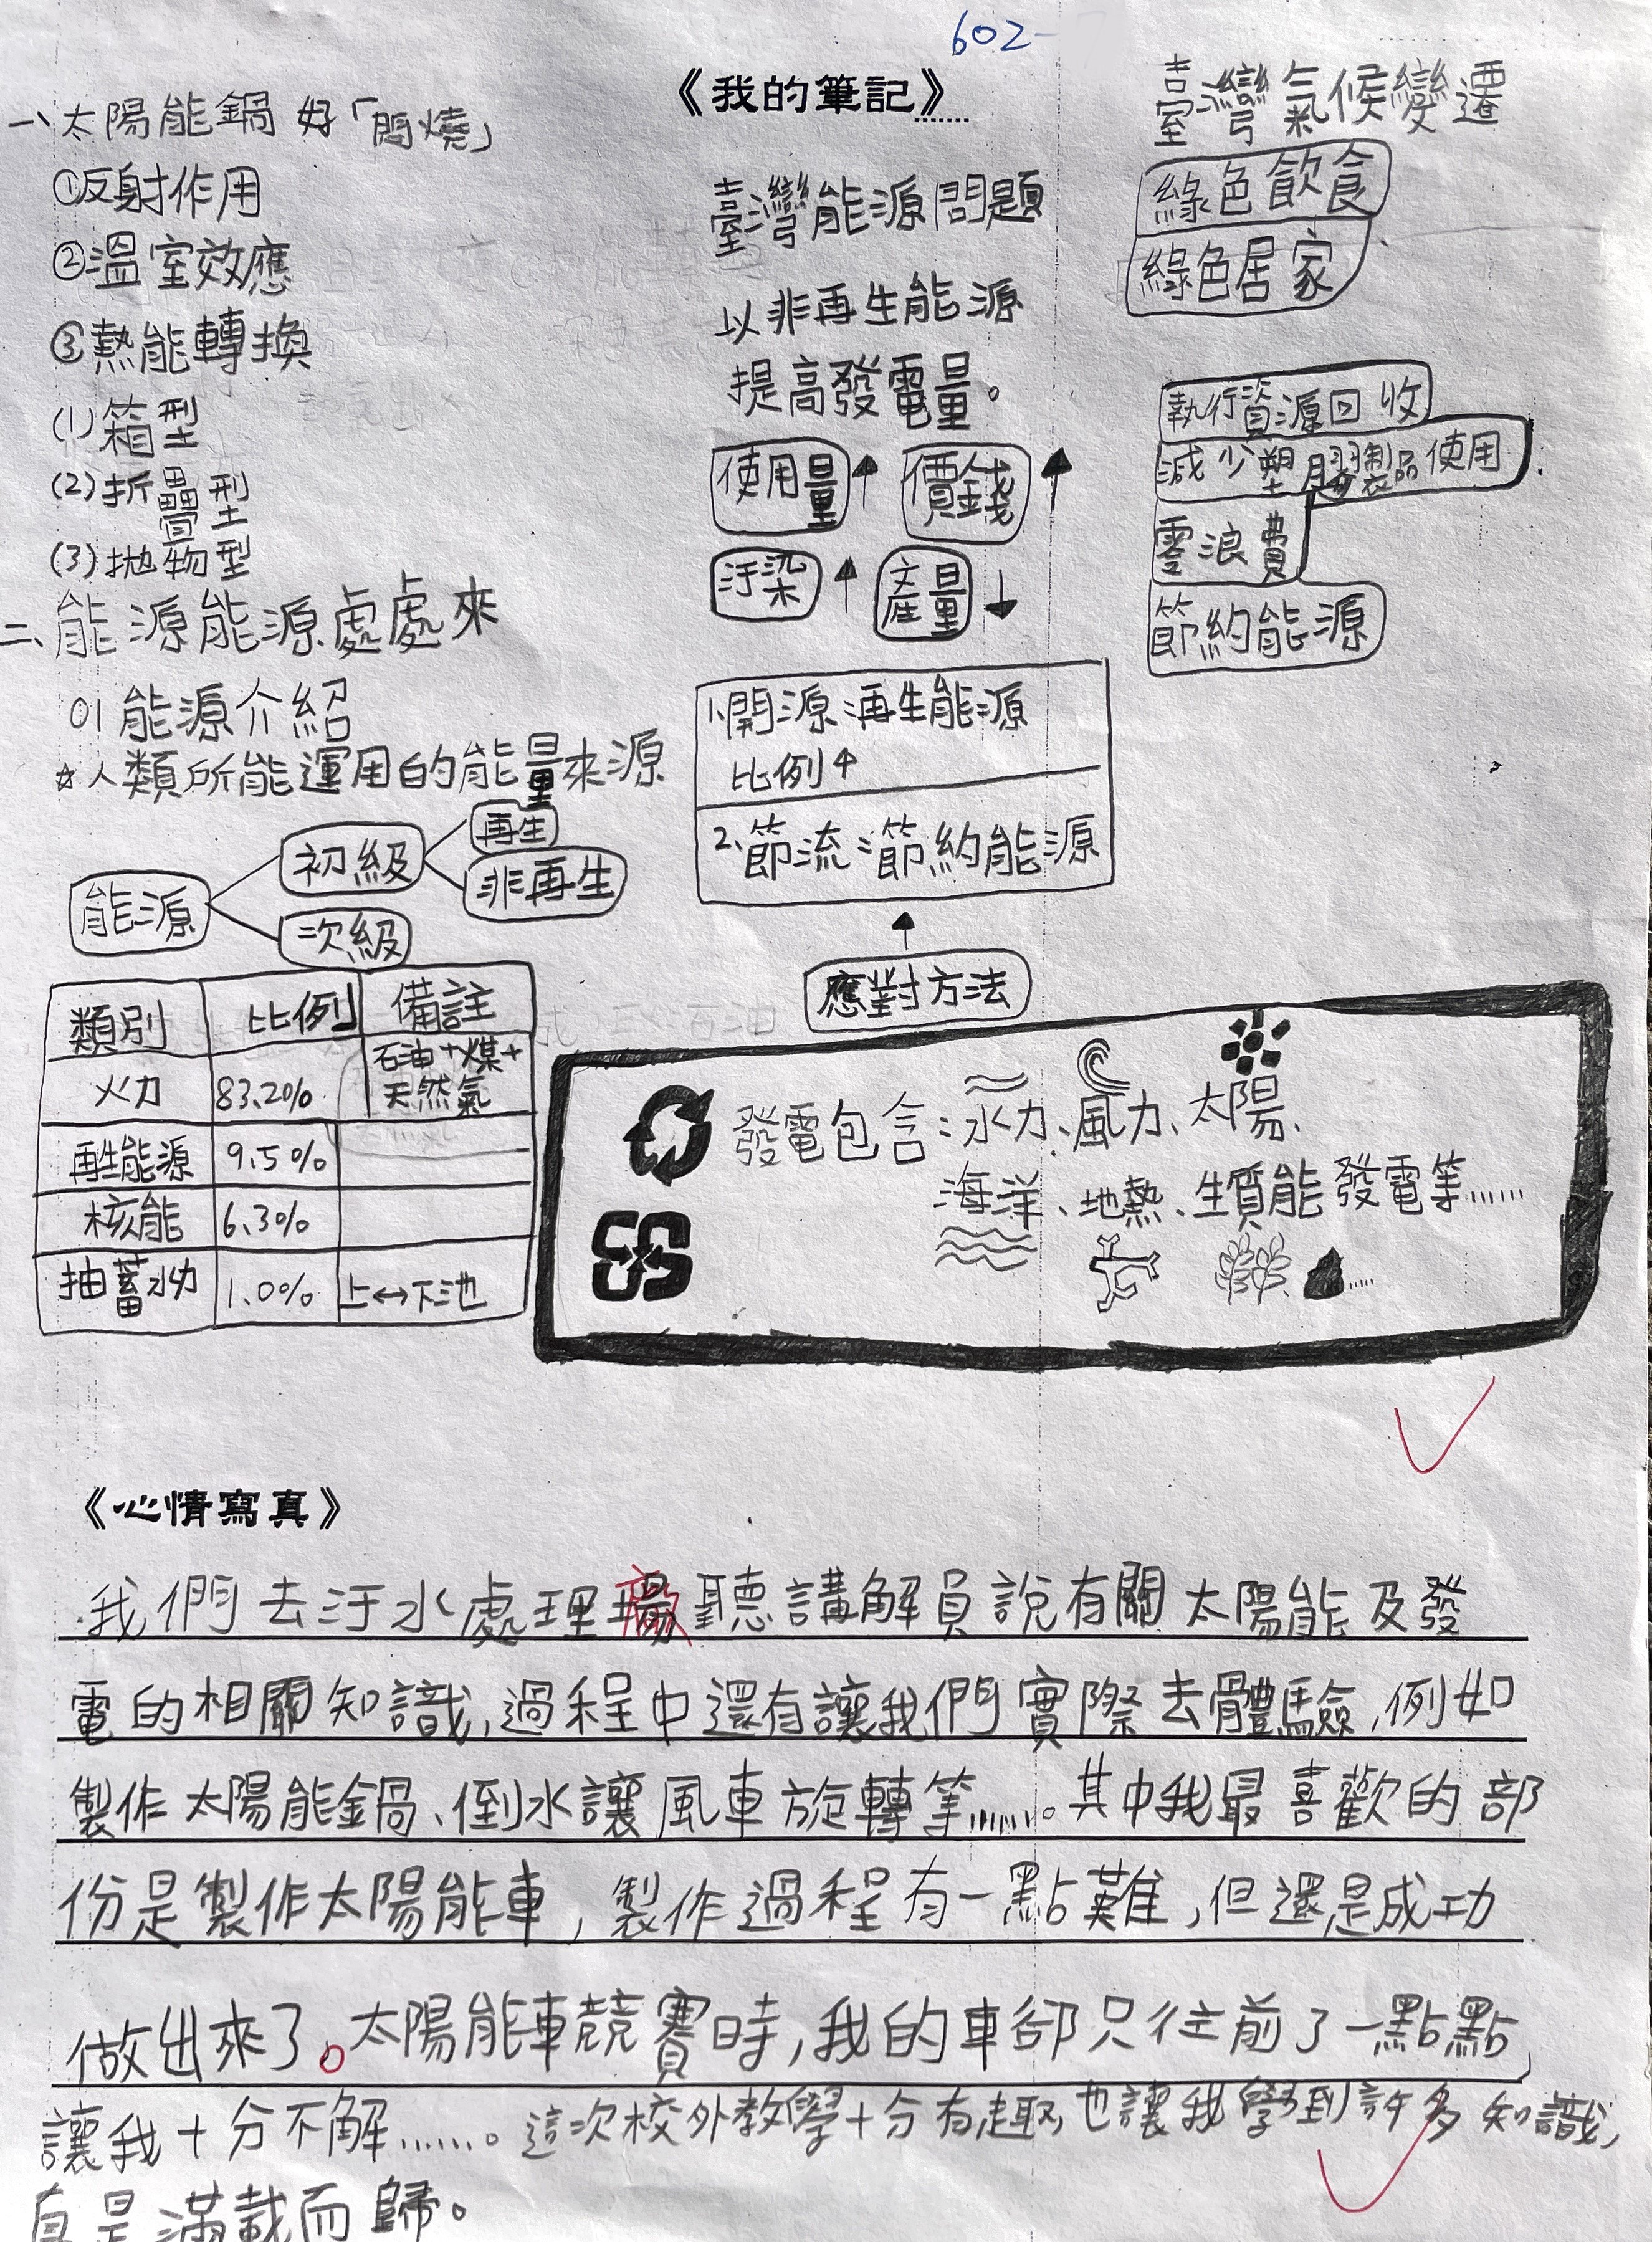 602-
《我的筆記》
一、太陽能鍋 好「悶燒」
①反射作用
②溫室效應
③熱能轉換
(1)箱型
(2)折疊型
(3)拋物型
二、能源能源處處來
01能源介紹
☆人類所能運用的能量來源
能源
初級
再生
非再生
次級
類別 比例 備註
火力 83.20% 石油+煤+天然氣
再生能源 9.5%
核能 6.3%
抽蓄水力 1.0% 上↔下池
臺灣能源問題
以非再生能源
提高發電量。
使用量↑ 價錢↑
汙染↑ 產量↓
1.開源:再生能源
比例↑
2.節流:節約能源
應對方法
臺灣氣候變遷
綠色飲食
綠色居家
執行資源回收
減少塑膠製品使用
零浪費
節約能源
發電包含:水力、風力、太陽、
海洋、地熱、生質能發電等……
《心情寫真》
我們去汙水處理廠聽講解員說有關太陽能及發
電的相關知識,過程中還有讓我們實際去體驗,例如
製作太陽能鍋、倒水讓風車旋轉等……。其中我最喜歡的部
份是製作太陽能車,製作過程有一點難,但還是成功
做出來了。太陽能車競賽時,我的車卻只往前了一點點,
讓我十分不解……。這次校外教學十分有趣,也讓我學到許多知識,
真是滿載而歸。